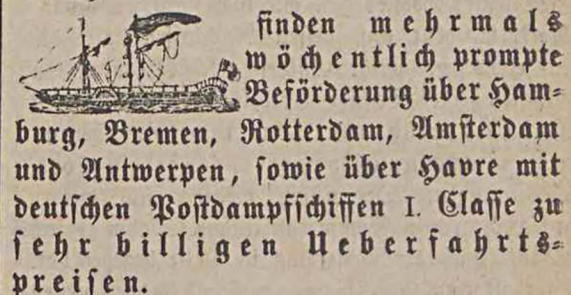 finden mehrmals
wöchentlich prompte
Beförderung über Ham-
burg, Bremen, Rotterdam, Amsterdam
und Antwerpen, sowie über Havre mit
deutschen Postdampfschiffen I. Classe zu
sehr billigen Ueberfahrts-
preisen.